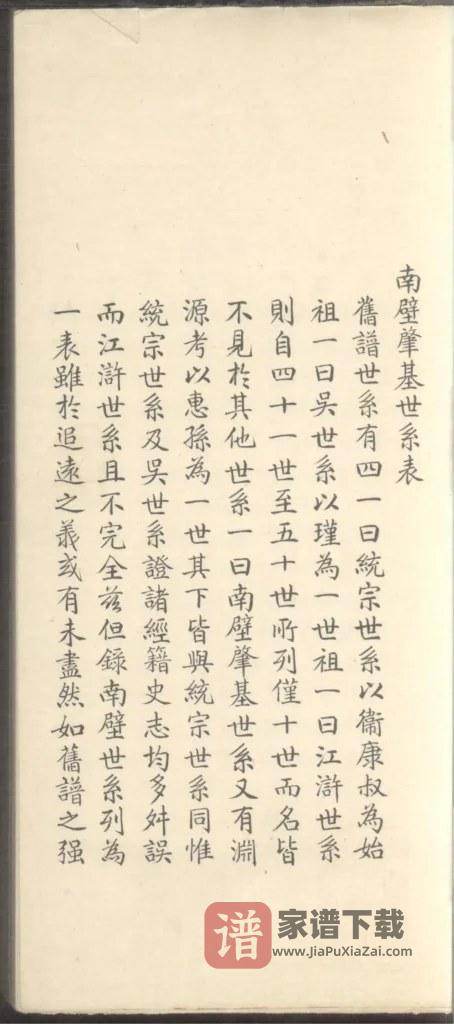 南壁肇基世系表
舊譜世系有四一曰統宗世系以衞康叔為始
祖一曰吳世系以瑾為一世祖一曰江滸世系
則自四十一世至五十世所列僅十世而名皆
不見於其他世系一曰南壁肇基世系又有淵
源考以惠孫為一世其下皆與統宗世系同惟
統宗世系及吳世系證諸經籍史志均多舛誤
而江滸世系且不完全茲但錄南壁世系列為
一表雖於追遠之義或有未盡然如舊譜之强
谱 家谱下载
www.JiaPuXiaZai.com